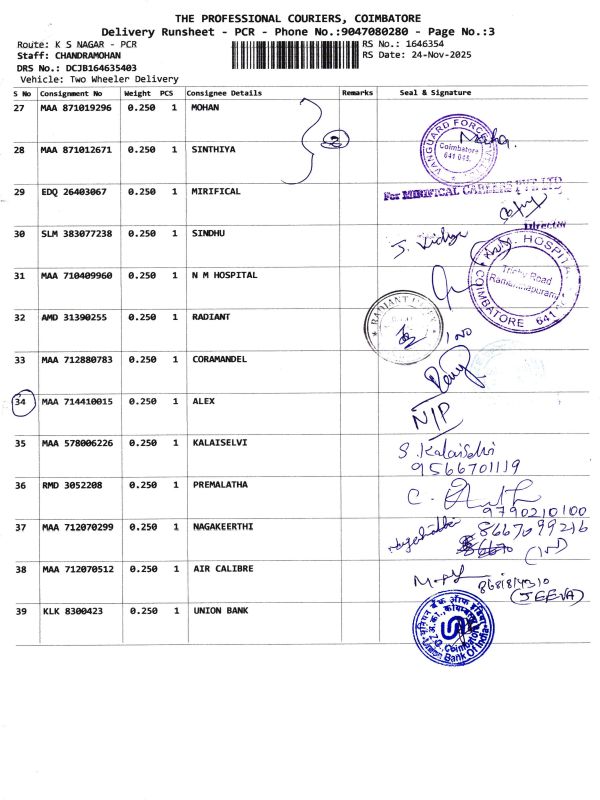 THE PROFESSIONAL COURIERS, COIMBATORE
Delivery Runsheet - PCR - Phone No.:9047080280 - Page No.:3
Route: K S NAGAR - PCR RS No.: 1646354
Staff: CHANDRAMOHAN RS Date: 24-Nov-2025
DRS No.: DCJB164635403
Vehicle: Two Wheeler Delivery
S No Consignment No Weight PCS Consignee Details Remarks Seal & Signature
27 MAA 871019296 0.250 1 MOHAN
VANGUARD FORCE
Coimbatore
641 045.
28 MAA 871012671 0.250 1 SINTHIYA
29 EDQ 26403067 0.250 1 MIRIFICAL
For MIRIFICAL CAREERS PVT LTD
Director
30 SLM 383077238 0.250 1 SINDHU
J. Vidya
31 MAA 710409960 0.250 1 N M HOSPITAL
N.M. HOSPITAL
Trichy Road
Ramanathapuram
COIMBATORE 641
32 AMD 31390255 0.250 1 RADIANT
RADIANT
33 MAA 712880783 0.250 1 CORAMANDEL
34 MAA 714410015 0.250 1 ALEX
N/P
35 MAA 578006226 0.250 1 KALAISELVI
S. Kalaiselvi
9566701119
36 RMD 3052208 0.250 1 PREMALATHA
C.
9790210100
37 MAA 712070299 0.250 1 NAGAKEERTHI
8667099216
38 MAA 712070512 0.250 1 AIR CALIBRE
(JEEVA)
39 KLK 8300423 0.250 1 UNION BANK
यूनियन बैंक ऑफ इंडिया
Coimbatore
Union Bank Of India